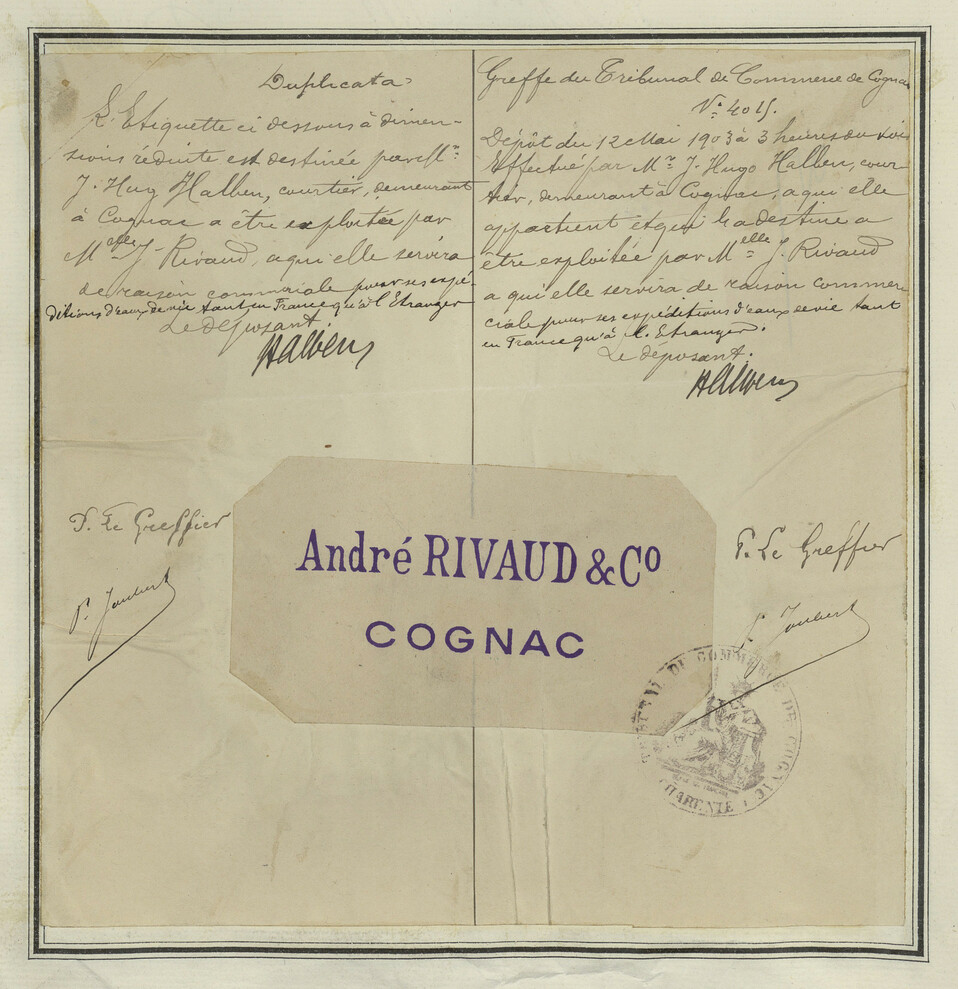 Duplicata
L'Etiquette ci dessous à dimen-
sions réduite est destinée par Mr
J. Hug Halben, courtier, demeurant
à Cognac a être exploitée par
Melle J. Rivaud, a qui elle servira
de raison commerciale pour ses expé
ditions d'eaux de vie tant en France qu'à l'Etranger
Le déposant.
Halben
P. Le Greffier
P. Joubert
Greffe du Tribunal de Commerce de Cognac
No. 4015.
Dépôt du 12 Mai 1903 à 3 heures du soir
Effectué par Mr. J. Hugo Halben, cour
tier, demeurant à Cognac, a qui elle
appartient et qui la destine a
être exploitée par Melle J. Rivaud
a qui elle servira de raison commer
ciale pour ses expéditions d'eaux de vie tant
en France qu'à l'Etranger.
Le déposant.
Halben
P. Le Greffier
P. Joubert
André RIVAUD & Co
COGNAC
TRIBUNAL DU COMMERCE DE COGNAC
CHARENTE